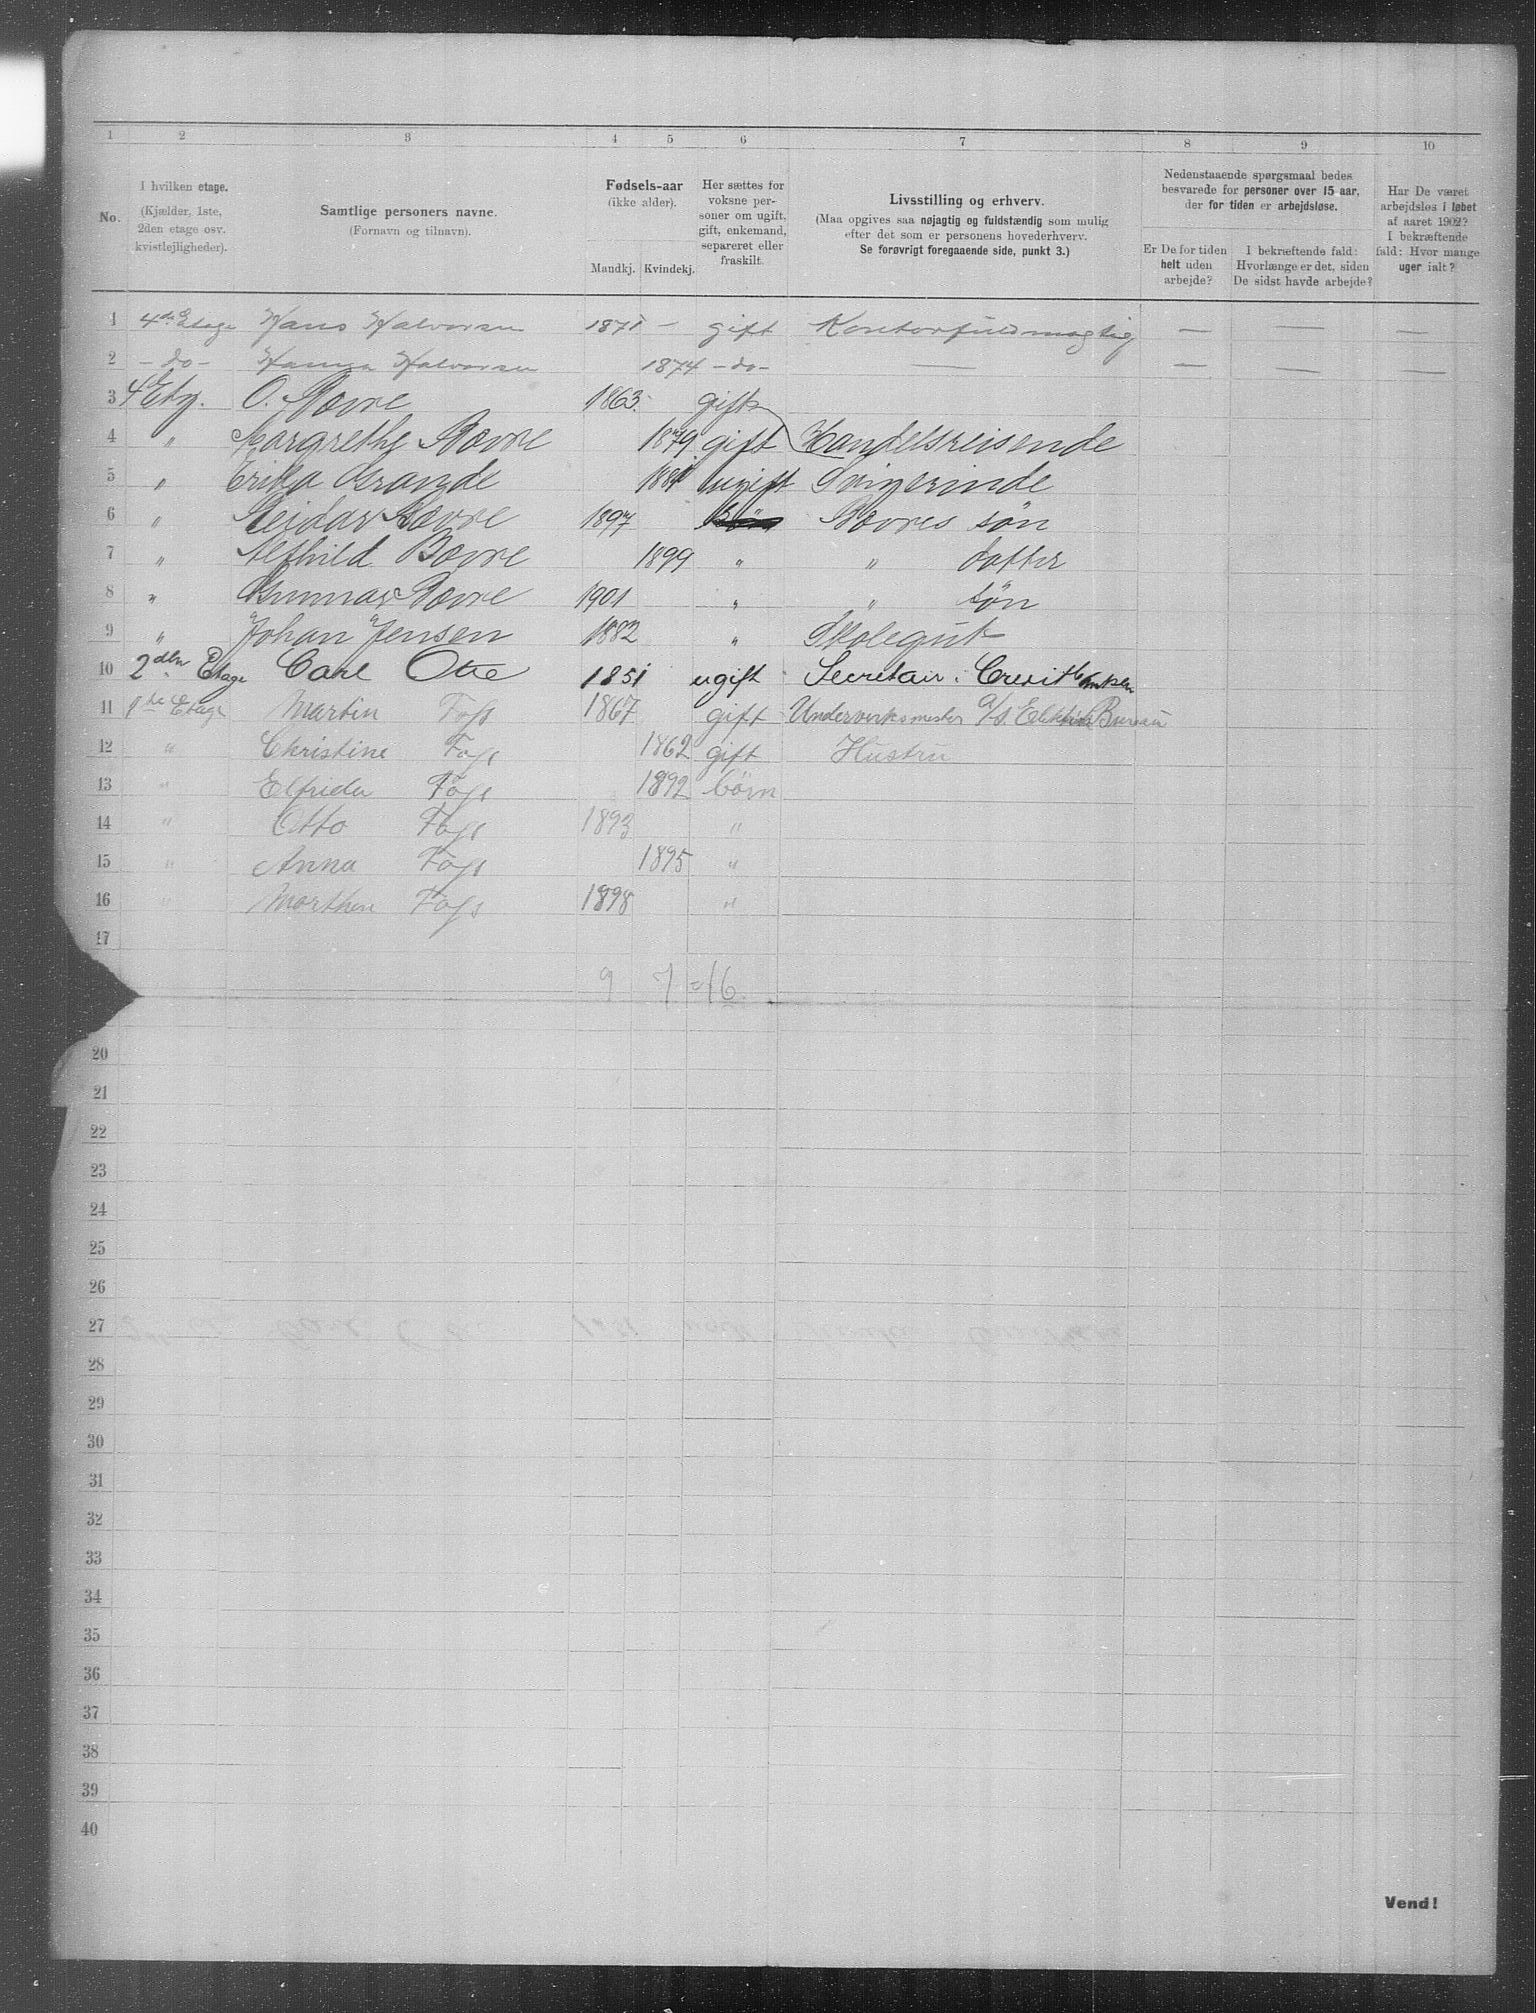 1 2 3 4 5 6 7 8 9 10
No.
I hvilken etage.
(Kjælder, 1ste,
2den etage osv.
kvistlejligheder).
Samtlige personers navne.
(Fornavn og tilnavn).
Fødsels-aar
(ikke alder).
Mandkj. Kvindekj.
Her sættes for
voksne per-
soner om ugift,
gift, enkemand,
separeret eller
fraskilt.
Livsstilling og erhverv.
(Maa opgives saa nøjagtig og fuldstændig som mulig
efter det som er personens hovederhverv.
Se forøvrigt foregaaende side, punkt 3.)
Nedenstaaende spørgsmaal bedes
besvarede for personer over 15 aar,
der for tiden er arbejdsløse.
Er De for tiden
helt uden
arbejde?
I bekræftende fald:
Hvorlænge er det, siden
De sidst havde arbejde?
Har De været
arbejdsløs i løbet
af aaret 1902?
I bekræftende
fald: Hvor mange
uger ialt?
1 4de Etage Hans Halvorsen 1871 — gift Kontorfuldmægtig — — —
2 — do — Halvorsen 1874 — do — — — — —
3 4 Etg. O. Bovre 1863 gift
4 " Margrethe Bovre 1879 gift Handelsreisende
5 " Erika Brande 1881 ugift Svigerinde
6 " Reidar Bovre 1897 Bovres søn
7 " Alfhild Bovre 1899 " " datter
8 " Gunnar Bovre 1901 " " søn
9 " Johan Jensen 1882 " Skolegut
10 2den Etage Carl Otte 1851 ugift Secretair i Creditbanken
11 1ste Etage Martin Foss 1867 gift Underverksmester A/S. Elektrisk Bureau
12 " Christine Foss 1862 gift Hustru
13 " Elfrida Foss 1892 börn
14 " Otto Foss 1893 "
15 " Anna Foss 1895 "
16 " Morthen Foss 1898 "
17
9 7 = 16.
20
21
22
23
24
25
26
27
28
29
30
31
32
33
34
35
36
37
38
39
40
Vend!